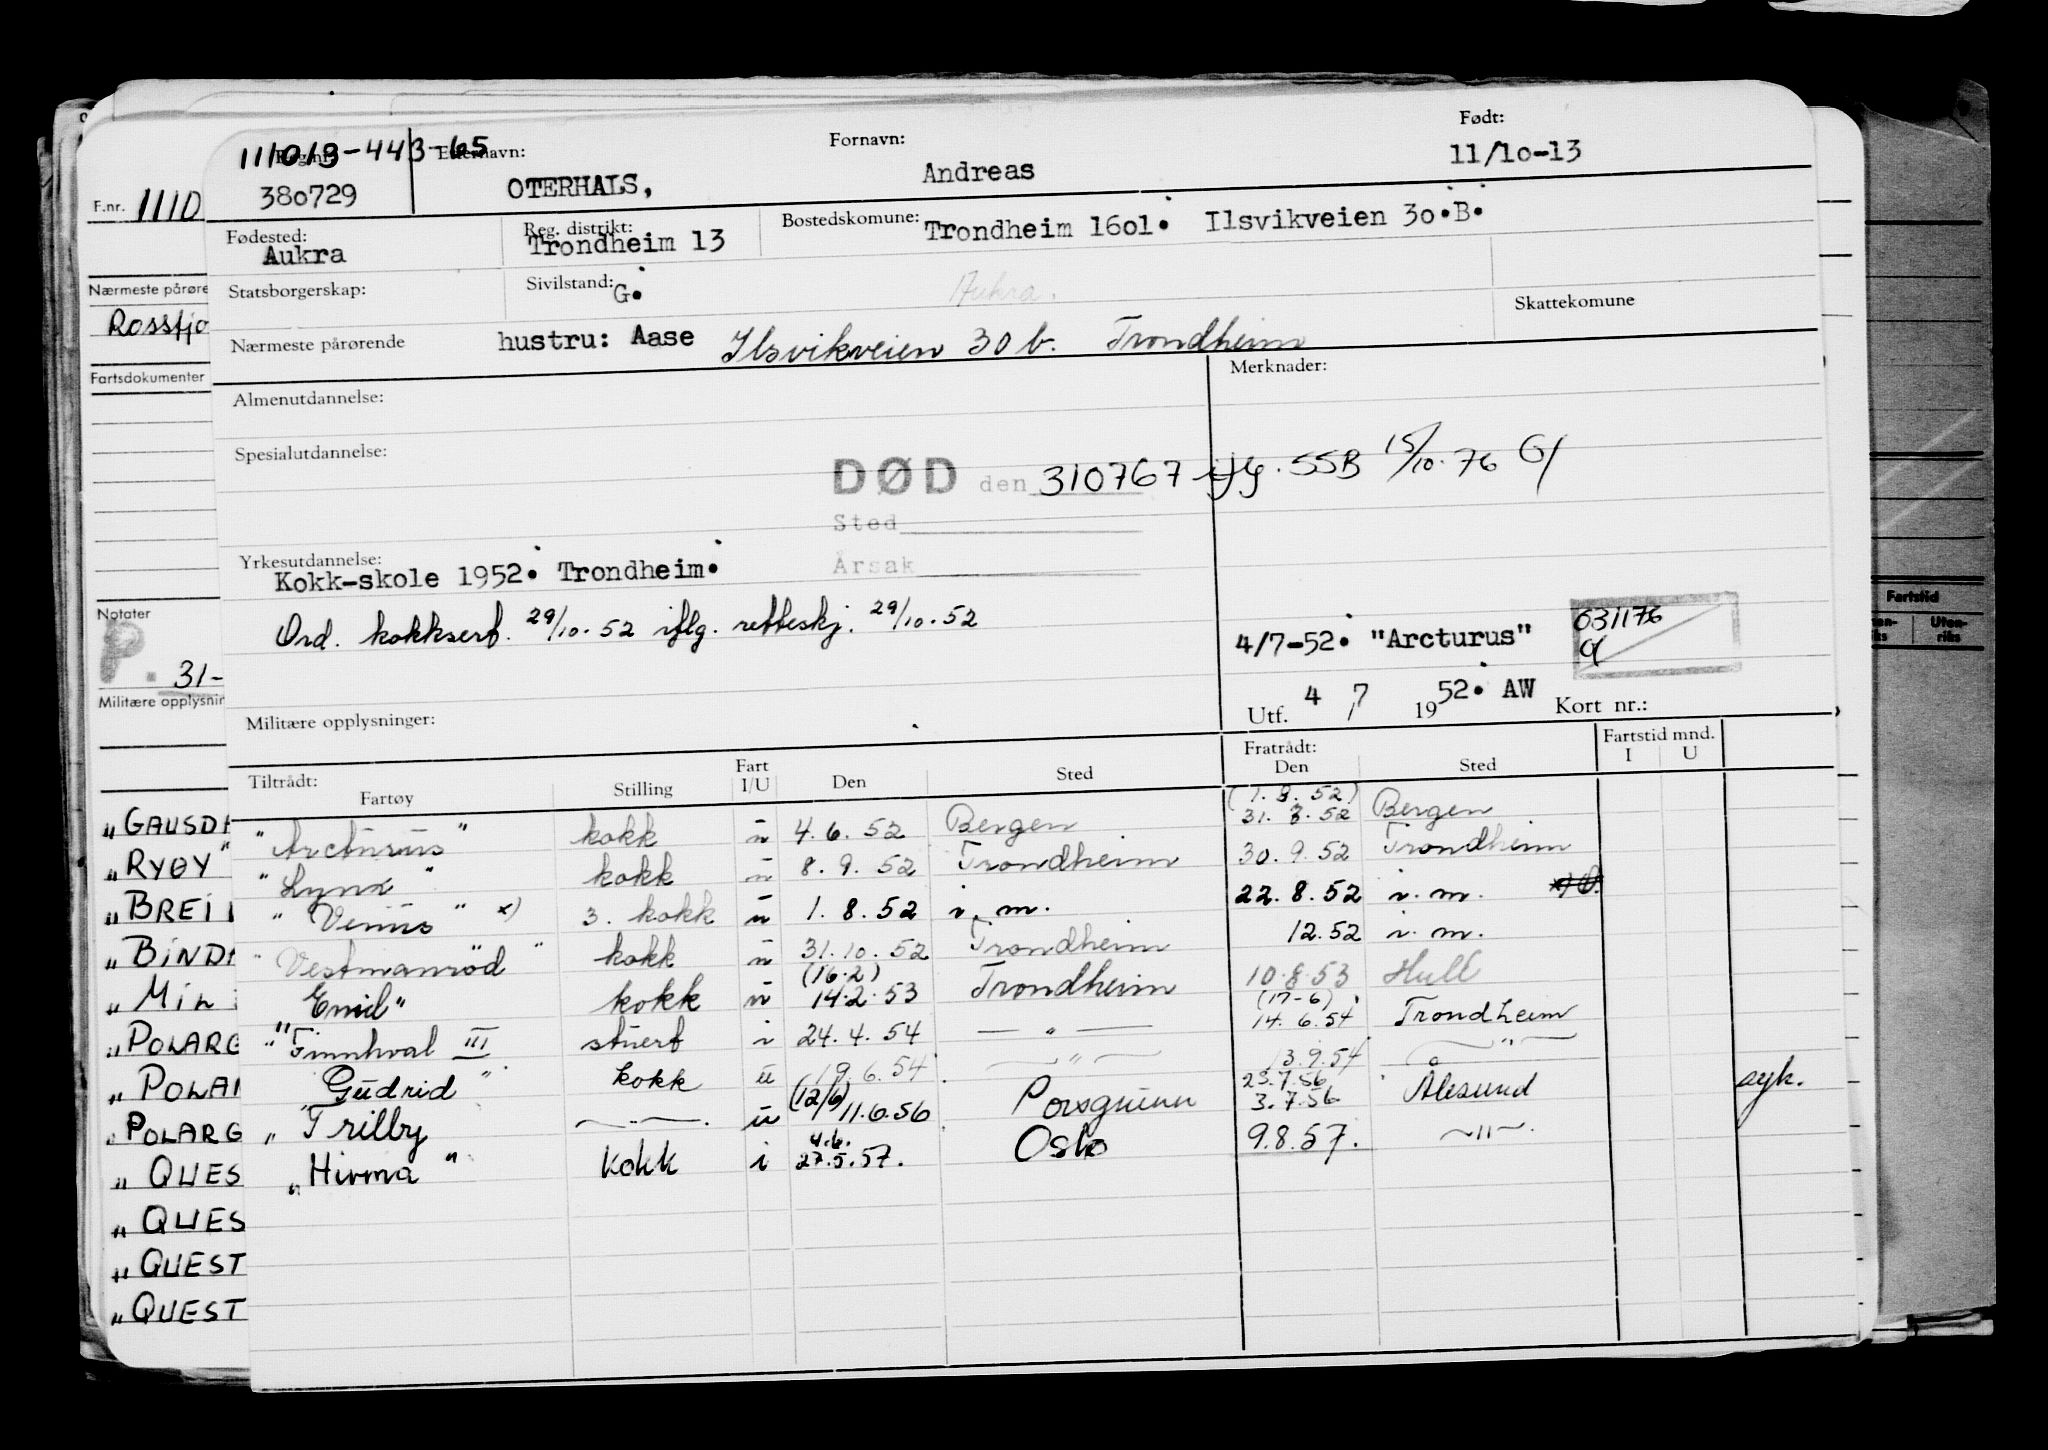 111013-443-65
Reg.nr. Etternavn: Fornavn: Født:
380729 OTERHALS, Andreas 11/10-13
Fødested: Reg. distrikt: Bostedskomune:
Aukra Trondheim 13 Trondheim 1601. Ilsvikveien 30.B.
Statsborgerskap: Sivilstand: G. Aukra. Skattekomune
Nærmeste pårørende hustru: Aase Ilsvikveien 30 b. Trondheim
Almenutdannelse: Merknader:
Spesialutdannelse:
DØD den 310767 iflg. SSB 15/10.76
Sted
Yrkesutdannelse: Årsak
Kokk-skole 1952. Trondheim.
Ord. kokksert. 29/10.52 iflg. retteskj. 29/10.52
4/7-52. "Arcturus" 031176
Utf. 4 / 7 1952. AW Kort nr.:
Militære opplysninger:
Tiltrådt: Fratrådt: Fartstid mnd.
Fartøy Stilling Fart I/U Den Sted Den Sted I U
"Arcturus" kokk u 4.6.52 Bergen (1.8.52) 31.8.52 Bergen
"Lynx" kokk u 8.9.52 Trondheim 30.9.52 Trondheim
"Venus" x) 3. kokk u 1.8.52 i.m. 22.8.52 i.m.
"Vestmanrød" kokk u 31.10.52 Trondheim 12.52 i.m.
"Emil" kokk u (16.2) 14.2.53 Trondheim 10.8.53 Hull
"Finnhval III" stuert i 24.4.54 — " — (17-6) 14.6.54 Trondheim
"Gudrid" kokk u 19.6.54 — " — 13.9.54 — " —
"Trilby —.— u (12/6) 11.6.56 Porsgrunn 23.7.56 3.7.56 Ålesund syk.
"Hirma" kokk i 4.6. 27.5.57. Oslo 9.8.57. —"—
F.nr. 1110
Nærmeste pårøre
Rossfjo
Fartsdokumenter
Notater
P. 31-
Militære opplysnin
"GAUSD
"RYGY"
"BREI
"BIND
"MIL
"POLARG
"POLA
"POLARG
"QUES
"QUES
"QUEST
"QUEST
Fartstid
Uten-
riks